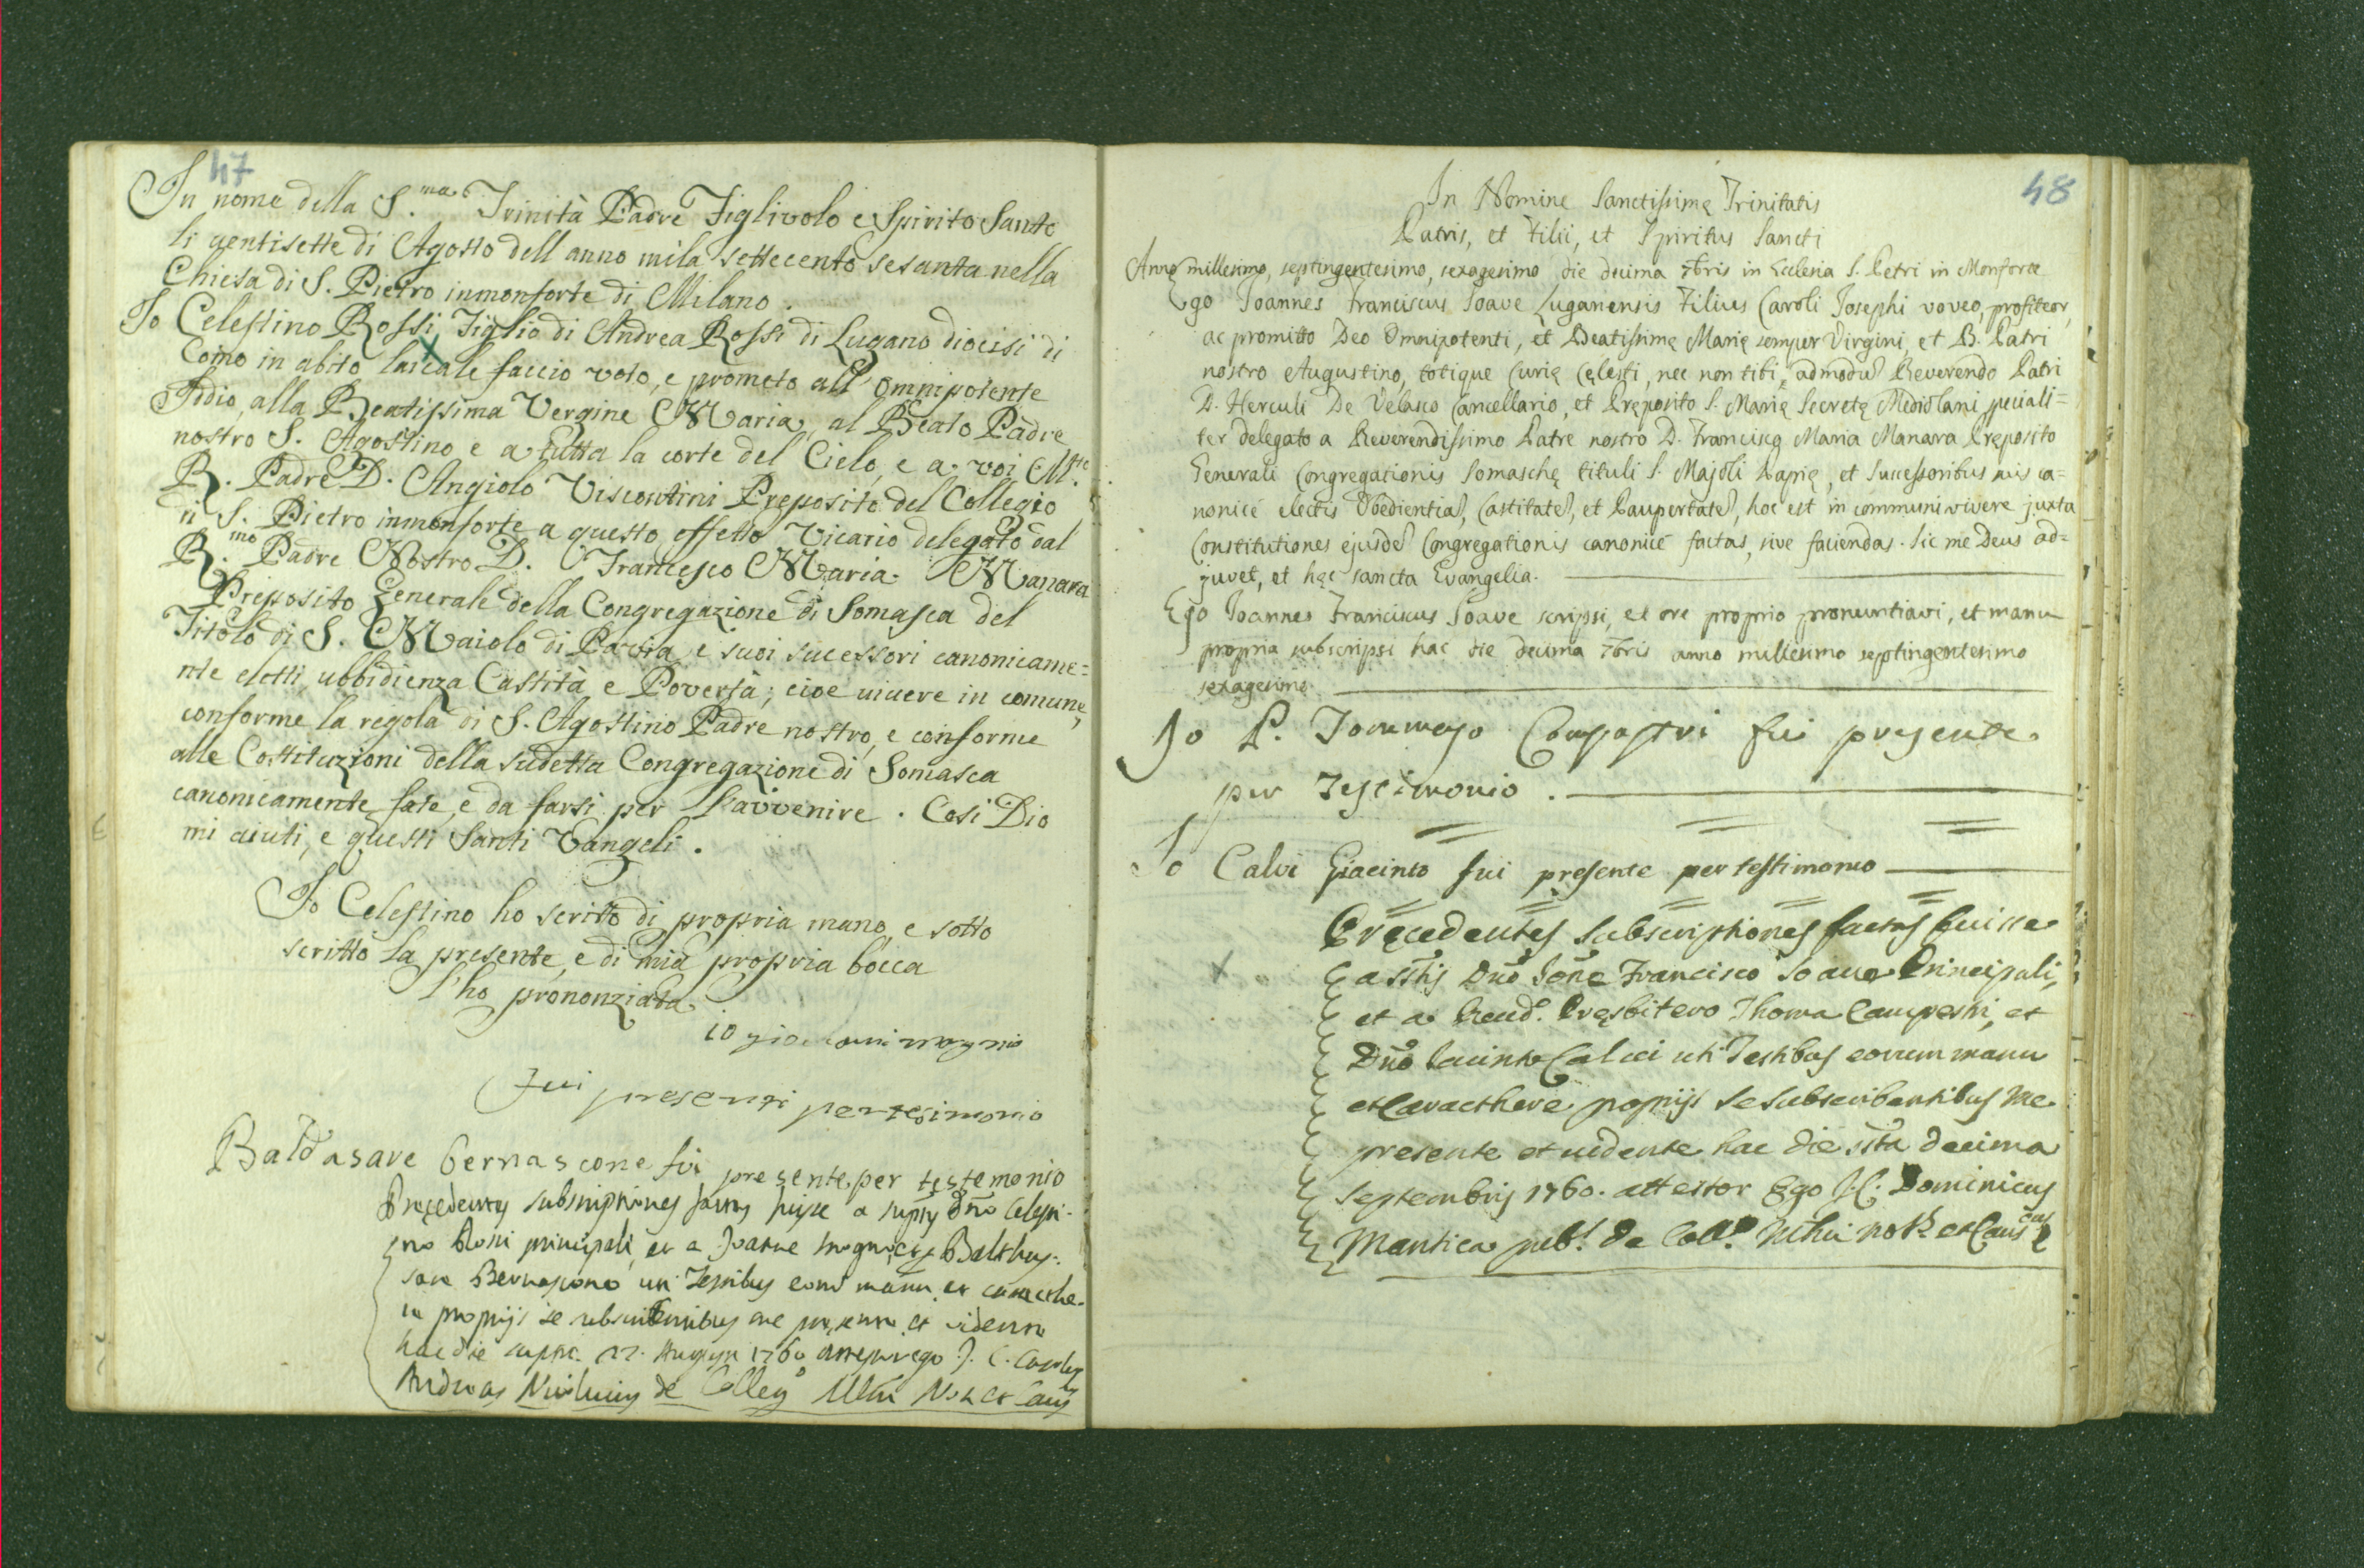 47
In nome della S.ma Trinità Padre Figlivolo e Spirito Santo
li ventisette di Agosto dell anno mila settecento sesanta nella
Chiesa di S. Pietro inmonforte di Milano.
Io Celestino Rossi Figlio di Andrea Rossi di Lugano diocisi di
Como in abito laicale faccio voto, e prometo all' omnipotente
Iddio, alla Beatissima Vergine Maria, al Beato Padre
nostro S. Agostino e a tutta la corte del Cielo, e a voi M.
R. Padre D. Angiolo Viscontini Preposito del Collegio
di S. Pietro inmonforte a questo effetto Vicario delegato dal
R.mo Padre Nostro D. Francesco Maria Manara
Preposito Generale della Congregazione di Somasca del
Titolo di S. Maiolo di Pavia, e suoi sucessori canonicame=
nte eletti, ubbidienza Castità e Povertà; cioe vivere in comune,
conforme la regola di S. Agostino Padre nostro, e conforme
alle Costituzioni della sudetta Congregazione di Somasca
canonicamente fate, e da farsi per l'avvenire. Cosi Dio
mi aiuti, e questi Santi Vangeli.
Io Celestino ho scritto di propria mano, e sotto
scritto la presente, e di mia propria bocca
l'ho prononziata
io
fui presenti per tesimonio
Baldasare Bernascone fui presente per testemonio
Precedentes subscriptiones factas fuisse a Dño Celesti-
no Rossi principali, et a Joanne Balthas-
sare Bernascono uti Testibus manu et caracthe-
re proprijs se subscribentibus me presente et vidente
hac die 27. 1760 ego J. C. Carolus
Andreas de Colleg.o
48
In Nomine Sanctissimę Trinitatis
Patris, et Filii, et Spiritus Sancti
Anno millesimo, septingentesimo, sexagesimo die decima 7bris in Ecclesia S. Petri in Monforte
Ego Joannes Franciscus Soave Luganensis Filius Caroli Josephi voveo, profiteor,
ac promitto Deo Omnipotenti, et Beatissimę Marię semper Virgini, et B. Patri
nostro Augustino, totique Curię Cęlesti, nec non tibi, admodu Reverendo Patri
D. Herculi De Velasco Cancellario, et Pręposito S. Marię Secretę Mediolani speciali=
ter delegato a Reverendissimo Patre nostro D. Francisco Maria Manara Pręposito
Generali Congregationis Somaschę tituli S. Majoli Papię, et Successoribus suis ca=
nonicè electis Obedientia, Castitate, et Paupertate, hoc est in communi vivere juxta
Constitutiones ejusde Congregationis canonicè factas, sive faciendas. Sic me Deus ad=
juvet, et hęc sancta Evangelia.
Ego Joannes Franciscus Soave scripsi, et ore proprio pronuntiavi, et manu
propria subscripsi hac die decima 7bris anno millesimo septingentesimo
sexagesimo.
Io P. Tommaso Campastri fui presente
per Testimonio.
Io Calvi Giacinto fui presente per testimonio
Pręcedentes subscriptiones factas fuisse
a Dño Joñe Francisco Soave Principali,
et a Reud. Pręsbitero Thoma Campestri, et
Dño Jacinto Calvi uti Testibus eorum manu
et Caracthere proprijs se subscribentibus me
presente et uidente hac die decima
Septembris 1760. attestor Ego J. C. Dominicus
Mantica pub. de Coll.